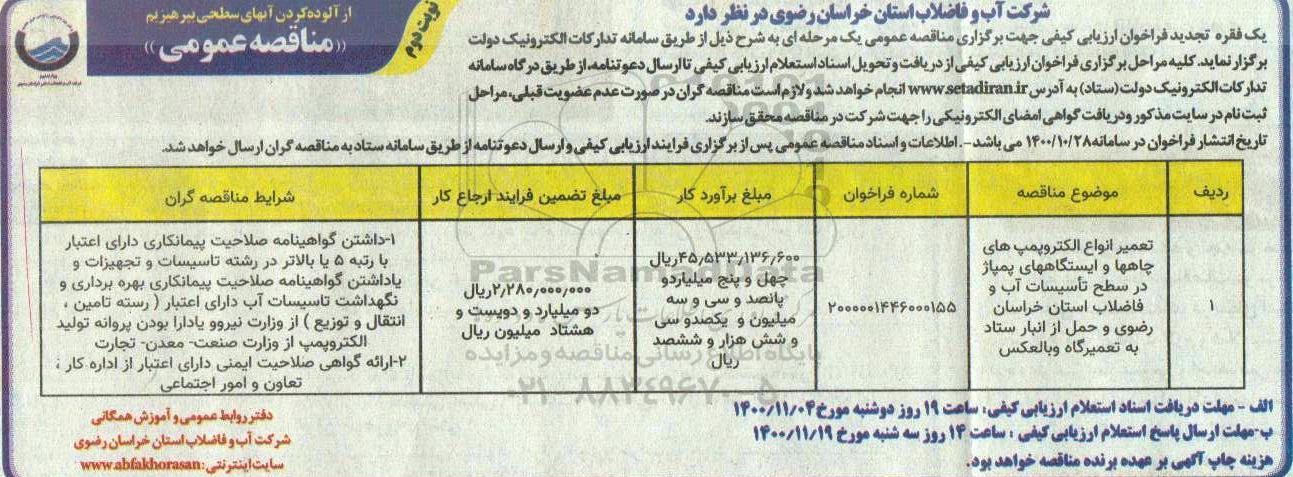 نوبت دوم
از آلوده کردن آبهای سطحی بپرهیزیم
((مناقصه عمومی))
شرکت آب و فاضلاب استان خراسان رضوی در نظر دارد
یک فقره تجدید فراخوان ارزیابی کیفی جهت برگزاری مناقصه عمومی یک مرحله ای به شرح ذیل از طریق سامانه تدارکات الکترونیک دولت
برگزار نماید. کلیه مراحل برگزاری فراخوان ارزیابی کیفی از دریافت و تحویل اسناد استعلام ارزیابی کیفی تا ارسال دعوتنامه، از طریق درگاه سامانه
تدارکات الکترونیک دولت (ستاد) به آدرس www.setadiran.ir انجام خواهد شد و لازم است مناقصه گران در صورت عدم عضویت قبلی، مراحل
ثبت نام در سایت مذکور و دریافت گواهی امضای الکترونیکی را جهت شرکت در مناقصه محقق سازند.
تاریخ انتشار فراخوان در سامانه ۱۴۰۰/۱۰/۲۸ می باشد-. اطلاعات و اسناد مناقصه عمومی پس از برگزاری فرایند ارزیابی کیفی و ارسال دعوتنامه از طریق سامانه ستاد به مناقصه گران ارسال خواهد شد.
ردیف
موضوع مناقصه
شماره فراخوان
مبلغ برآورد کار
مبلغ تضمین فرایند ارجاع کار
شرایط مناقصه گران
۱
تعمیر انواع الکتروپمپ های
چاهها و ایستگاههای پمپاژ
در سطح تأسیسات آب و
فاضلاب استان خراسان
رضوی و حمل از انبار ستاد
به تعمیرگاه وبالعکس
۲۰۰۰۰۰۱۴۴۶۰۰۰۱۵۵
۴۵٫۵۳۳٫۱۳۶٫۶۰۰ریال
چهل و پنج میلیاردو
پانصد و سی و سه
میلیون و یکصدو سی
و شش هزار و ششصد
ریال
۲٫۲۸۰٫۰۰۰٫۰۰۰ریال
دو میلیارد و دویست و
هشتاد میلیون ریال
۱-داشتن گواهینامه صلاحیت پیمانکاری دارای اعتبار
با رتبه ۵ یا بالاتر در رشته تاسیسات و تجهیزات و
یاداشتن گواهینامه صلاحیت پیمانکاری بهره برداری و
نگهداشت تاسیسات آب دارای اعتبار ( رسته تامین ،
انتقال و توزیع ) از وزارت نیروو یادارا بودن پروانه تولید
الکتروپمپ از وزارت صنعت- معدن- تجارت
۲-ارائه گواهی صلاحیت ایمنی دارای اعتبار از اداره کار ،
تعاون و امور اجتماعی
ParsNamadData
پایگاه اطلاع رسانی مناقصه و مزایده
۰۲۱-۸۸۳۴۹۶۷۰-۵
الف - مهلت دریافت اسناد استعلام ارزیابی کیفی: ساعت ۱۹ روز دوشنبه مورخ ۱۴۰۰/۱۱/۰۴
ب-مهلت ارسال پاسخ استعلام ارزیابی کیفی : ساعت ۱۴ روز سه شنبه مورخ ۱۴۰۰/۱۱/۱۹
هزینه چاپ آگهی بر عهده برنده مناقصه خواهد بود.
دفتر روابط عمومی و آموزش همگانی
شرکت آب و فاضلاب استان خراسان رضوی
سایت اینترنتی: www.abfakhorasan